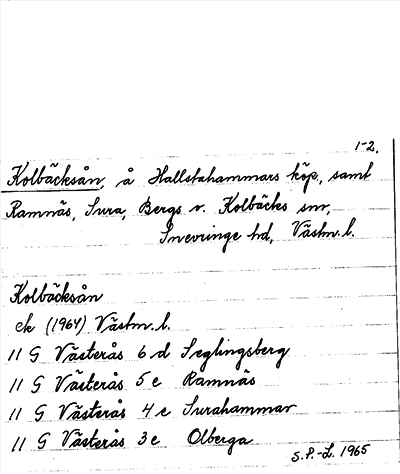 1-2.
Kolbäcksån, å Hallstahammars köp., samt
Ramnäs, Sura, Bergs o. Kolbäcks snr,
Snevringe hd, Västm.l.
Kolbäcksån
ek (1964) Västm.l.
11 G Västerås 6 d Seglingsberg
11 G Västerås 5 e Ramnäs
11 G Västerås 4 e Surahammar
11 G Västerås 3 e Olberga
S.P.-L. 1965